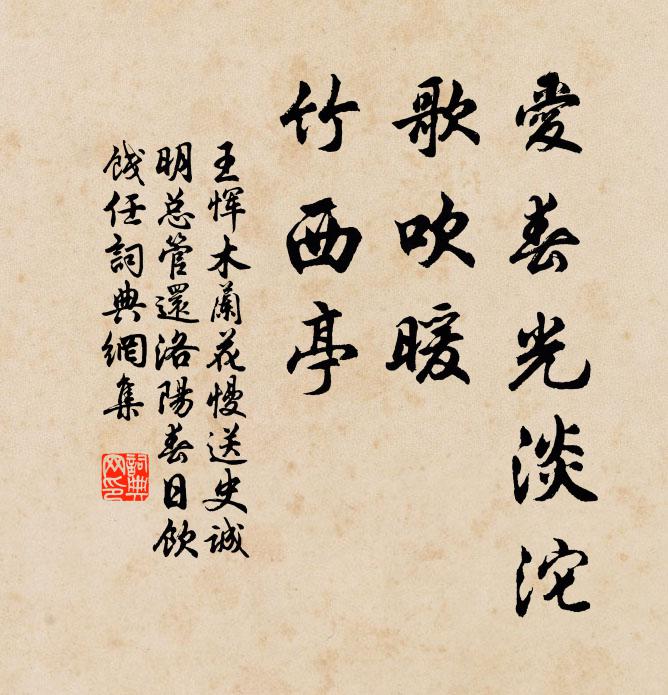 愛春光淡沱
歌吹暖
竹西亭
王惲木蘭花慢送史誠
明总管還洛陽春日飲
餞任詞典網集
詞典
网印